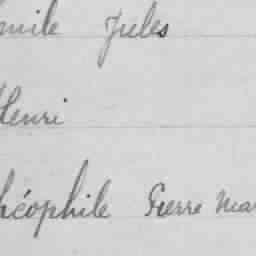 mile Jules
Henri
héophile Pierre Mar